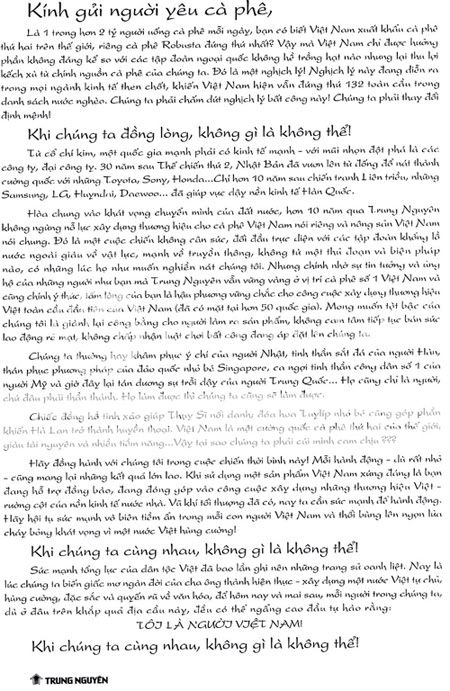 Kính gửi người yêu cà phê,
Là 1 trong hơn 2 tỷ người uống cà phê mỗi ngày, bạn có biết Việt Nam xuất khẩu cà phê
thứ hai trên thế giới, riêng cà phê Robusta đứng thứ nhất? Vậy mà Việt Nam chỉ được hưởng
phần không đáng kể so với các tập đoàn ngoại quốc không hề trồng hạt nào nhưng lại thu lợi
kếch xù từ chính nguồn cà phê của chúng ta. Đó là một nghịch lý! Nghịch lý này đang diễn ra
trong mọi ngành kinh tế then chốt, khiến Việt Nam hiện vẫn đứng thứ 132 toàn cầu trong
danh sách nước nghèo. Chúng ta phải chấm dứt nghịch lý bất công này! Chúng ta phải thay đổi
định mệnh!
Khi chúng ta đồng lòng, không gì là không thể!
Từ cổ chí kim, một quốc gia mạnh phải có kinh tế mạnh - với mũi nhọn đột phá là các
công ty, đại công ty. 30 năm sau Thế chiến thứ 2, Nhật Bản đã vươn lên từ đống đổ nát thành
cường quốc với những Toyota, Sony, Honda...Chỉ hơn 10 năm sau chiến tranh Liên triều, những
Samsung, LG, Huyndai, Daewoo... đã giúp vực dậy nền kinh tế Hàn Quốc.
Hòa chung vào khát vọng chuyển mình của đất nước, hơn 10 năm qua Trung Nguyên
không ngừng nỗ lực xây dựng thương hiệu cho cà phê Việt Nam nói riêng và nông sản Việt Nam
nói chung. Đó là một cuộc chiến không cân sức, đối đầu trực diện với các tập đoàn khổng lồ
nước ngoài giàu về vật lực, mạnh về truyền thông, không từ một thủ đoạn và biện pháp
nào, có những lúc họ như muốn nghiền nát chúng tôi. Nhưng chính nhờ sự tin tưởng và ủng
hộ của những người như bạn mà Trung Nguyên vẫn vững vàng ở vị trí cà phê số 1 Việt Nam và
cũng chính ý thức, tấm lòng của bạn là hậu phương vững chắc cho công cuộc xây dựng thương hiệu
Việt toàn cầu đầu tiên của Việt Nam (đã có mặt tại hơn 50 quốc gia). Mong muốn tột bậc của
chúng tôi là giành lại công bằng cho người làm ra sản phẩm, không cam tâm tiếp tục bán sức
lao động rẻ mạt, không chấp nhận luật chơi bất công đang áp đặt lên chúng ta.
Chúng ta thường hay khâm phục ý chí của người Nhật, tinh thần sắt đá của người Hàn,
thán phục phương pháp của đảo quốc nhỏ bé Singapore, ca ngợi tinh thần công dân số 1 của
người Mỹ và giờ đây lại tán dương sự trỗi dậy của người Trung Quốc... Họ cũng chỉ là người,
chứ đâu phải thần thánh. Họ làm được thì chúng ta cũng sẽ làm được.
Chiếc đồng hồ tinh xảo giúp Thụy Sĩ nổi danh, đóa hoa Tuylíp nhỏ bé cũng góp phần
khiến Hà Lan trở thành huyền thoại. Việt Nam là một cường quốc cà phê thứ hai của thế giới,
giàu tài nguyên và nhiều tiềm năng...Vậy tại sao chúng ta phải cúi mình cam chịu ???
Hãy đồng hành với chúng tôi trong cuộc chiến thời bình này! Mỗi hành động - dù rất nhỏ
- cũng mang lại những kết quả lớn lao. Khi sử dụng một sản phẩm Việt Nam xứng đáng là bạn
đang hỗ trợ đồng bào, đang đóng góp vào công cuộc xây dựng những thương hiệu Việt -
rường cột của nền kinh tế nước nhà. Vũ khí tối thượng đã có, nay ta cần sức mạnh để hành động.
Hãy hội tụ sức mạnh vô biên tiềm ẩn trong mỗi con người Việt Nam và thổi bùng lên ngọn lửa
cháy bỏng khát vọng vì một nước Việt hùng cường!
Khi chúng ta cùng nhau, không gì là không thể!
Sức mạnh tổng lực của dân tộc Việt đã bao lần ghi nên những trang sử oanh liệt. Nay là
lúc chúng ta biến giấc mơ ngàn đời của cha ông thành hiện thực - xây dựng một nước Việt tự chủ,
hùng cường, đặc sắc và quyến rũ về văn hóa, để hôm nay và mai sau, mỗi người trong chúng ta,
dù ở đâu trên khắp quả địa cầu này, đều có thể ngẩng cao đầu tự hào rằng:
TÔI LÀ NGƯỜI VIỆT NAM!
Khi chúng ta cùng nhau, không gì là không thể!
TRUNG NGUYÊN